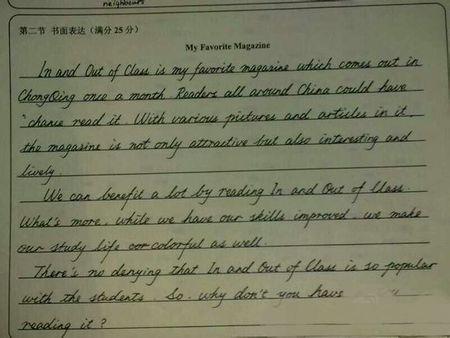 neighbours
第二节 书面表达（满分 25 分）
My Favorite Magazine
In and Out of Class is my favorite magazine which comes out in
ChongQing once a month. Readers all around China could have
chance read it. With various pictures and articles in it,
the magasine is not only attractive but also interesting and
lively.
We can benefit a lot by reading In and Out of Class.
What's more, while we have our skills improved, we make
our study life cor colorful as well.
There's no denying that In and Out of Class is so popular
with the students. So, why don't you have
reading it?